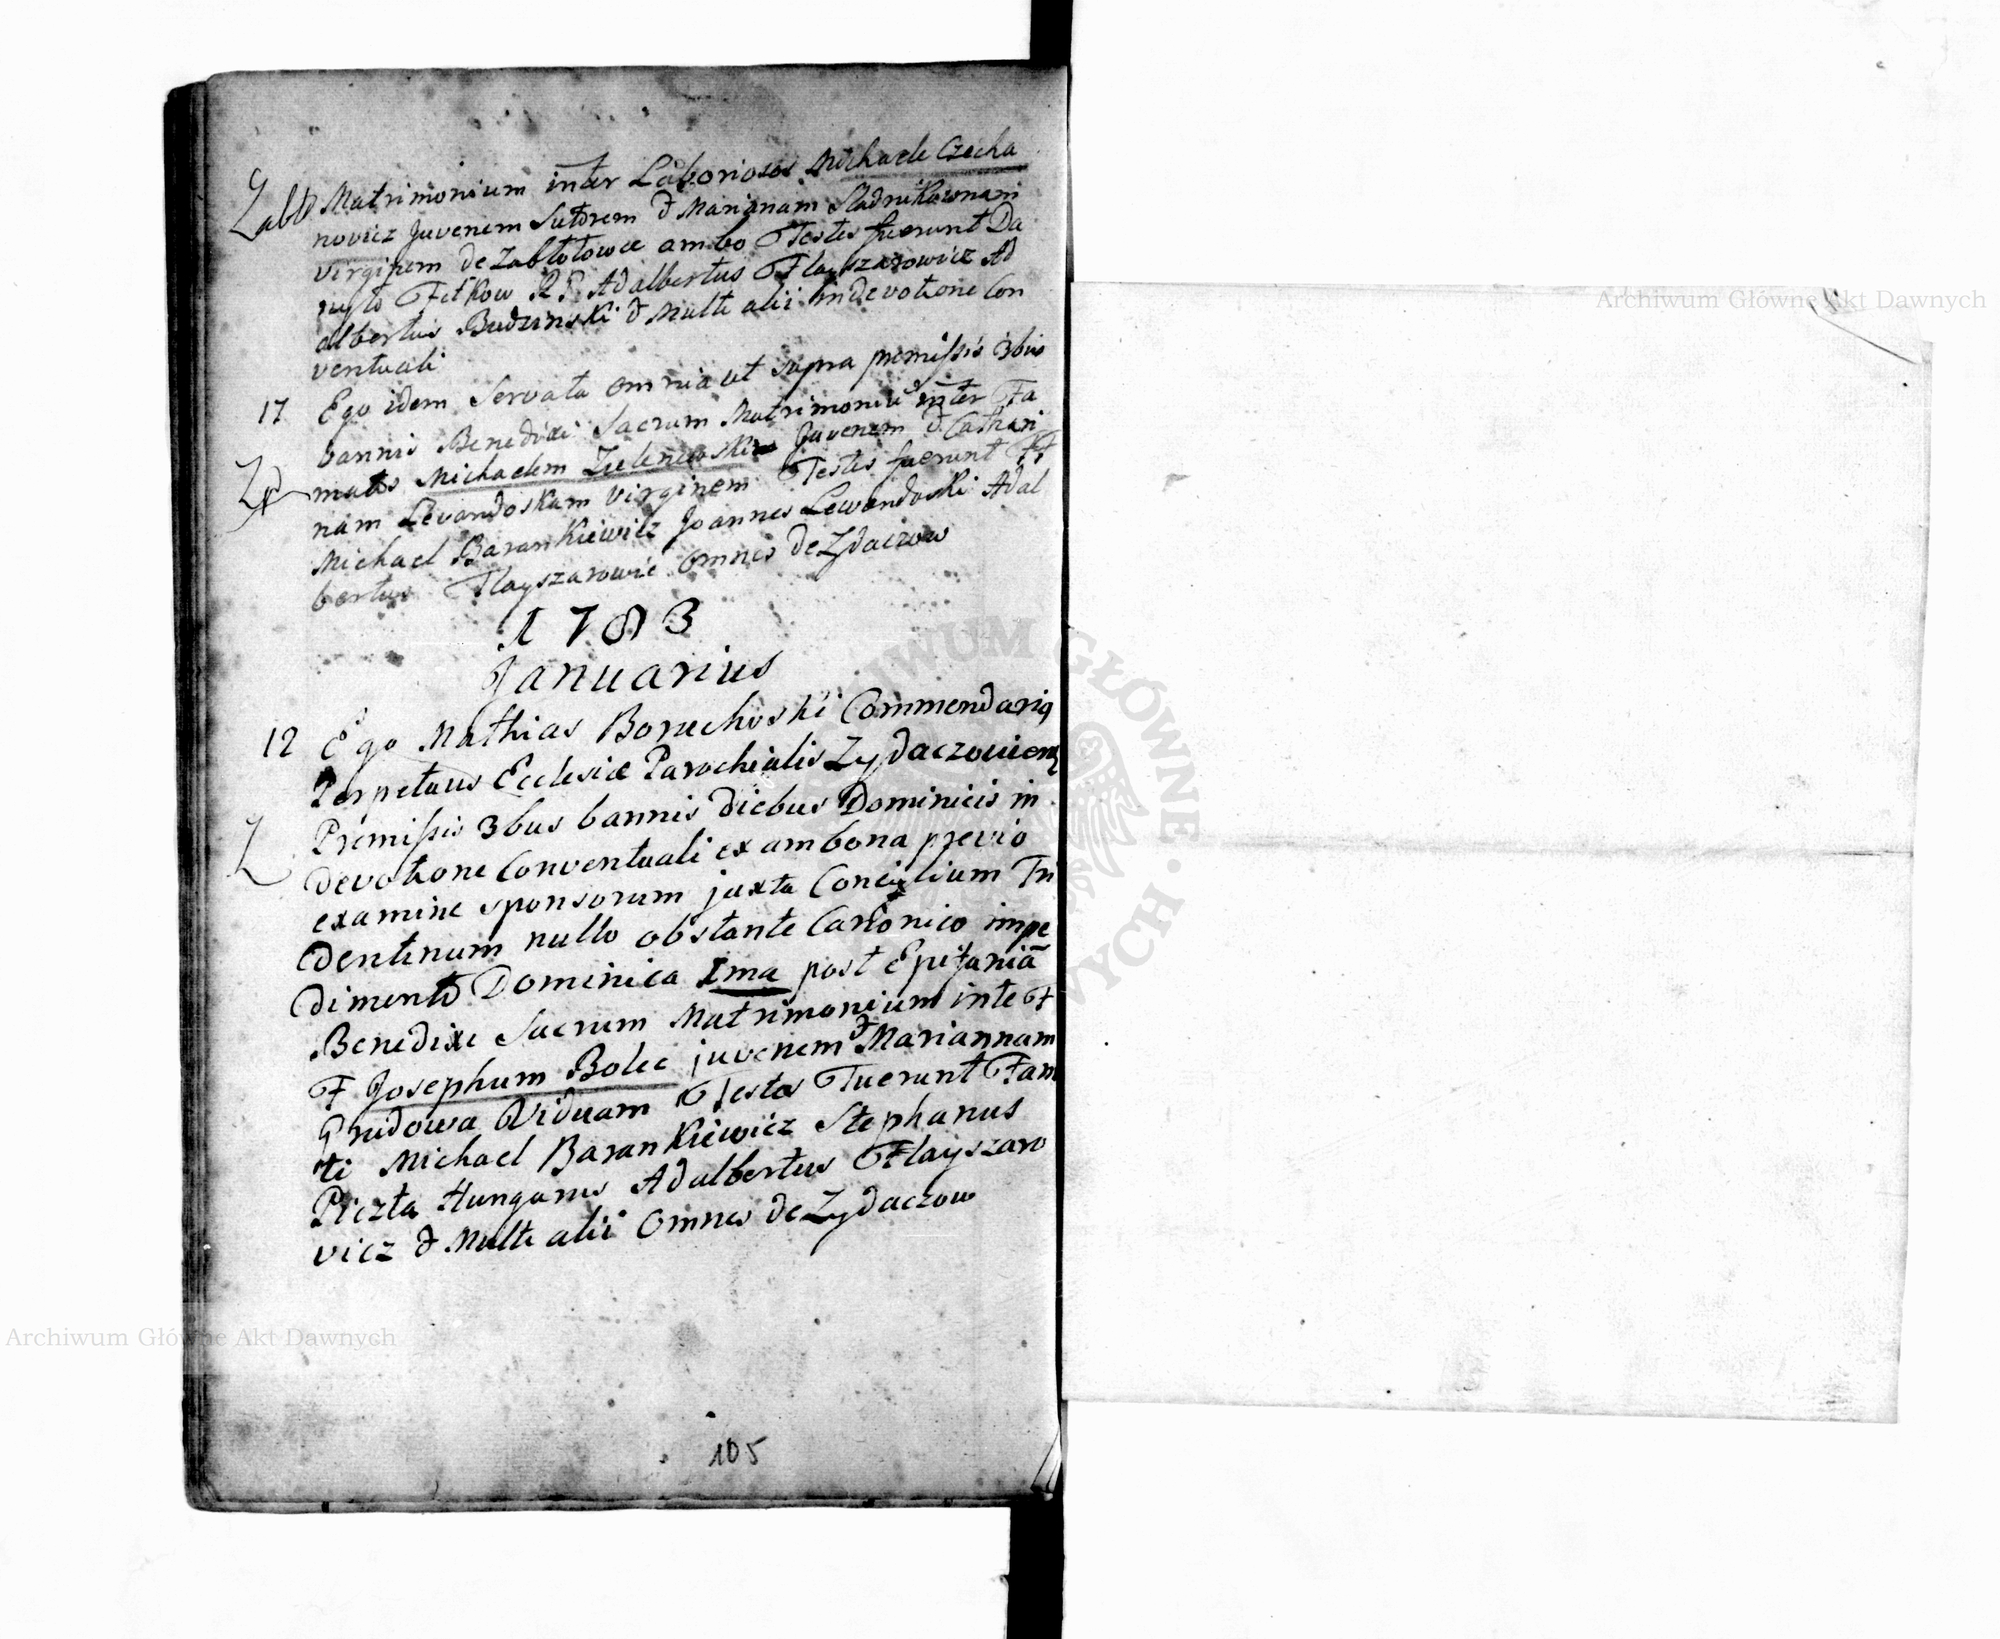 Zabł Matrimonium inter Laboriosos Michaele Czecha
novicz Juvenem Sutorem & Mariannam Sladnikownam
virginem de Zabłotowce ambo Testes fuerunt Da
Fetkow Adalbertus Flayszarowicz Ad
albertus Budzinski & Multi alii in devotione Con
ventuali
17 Ego idem Servata omnia ut supra premissis 3bus
bannis Benedixi Sacrum Matrimoniu inter Fa
matos Michaelem Zieleniewski Juvenem & Cathari
nam Levandoskam virginem Testes fuerunt FF
Michael Barankiewicz Joannes Lewandoski Adal
bertus Flayszarowic omnes de Zydaczow
1783
Januarius
12 Ego Mathias Boruchoski Commendarius
Perpetuus Ecclesiæ Parochialis Zydaczoviens
Premissis 3bus bannis diebus Dominicis in
Z devotione Conventuali ex ambona previo
examine sponsorum juxta Concilium Tri
dentinum nullo obstante Canonico impe
dimento Dominica Ima post Epifaniā
Benedixi Sacrum Matrimonium inte F
F Josephum Bolec juvenem & Mariannam
Grudowa Viduam Testes Fuerunt Fam
ti Michael Barankiewicz Stephanus
Piczta Hungarus Adalbertus Flayszaro
vicz & Multi alii Omnes de Zydaczow
105
Archiwum Główne Akt Dawnych
Archiwum Główne Akt Dawnych
ARCHIWUM GŁÓWNE AKT DAWNYCH